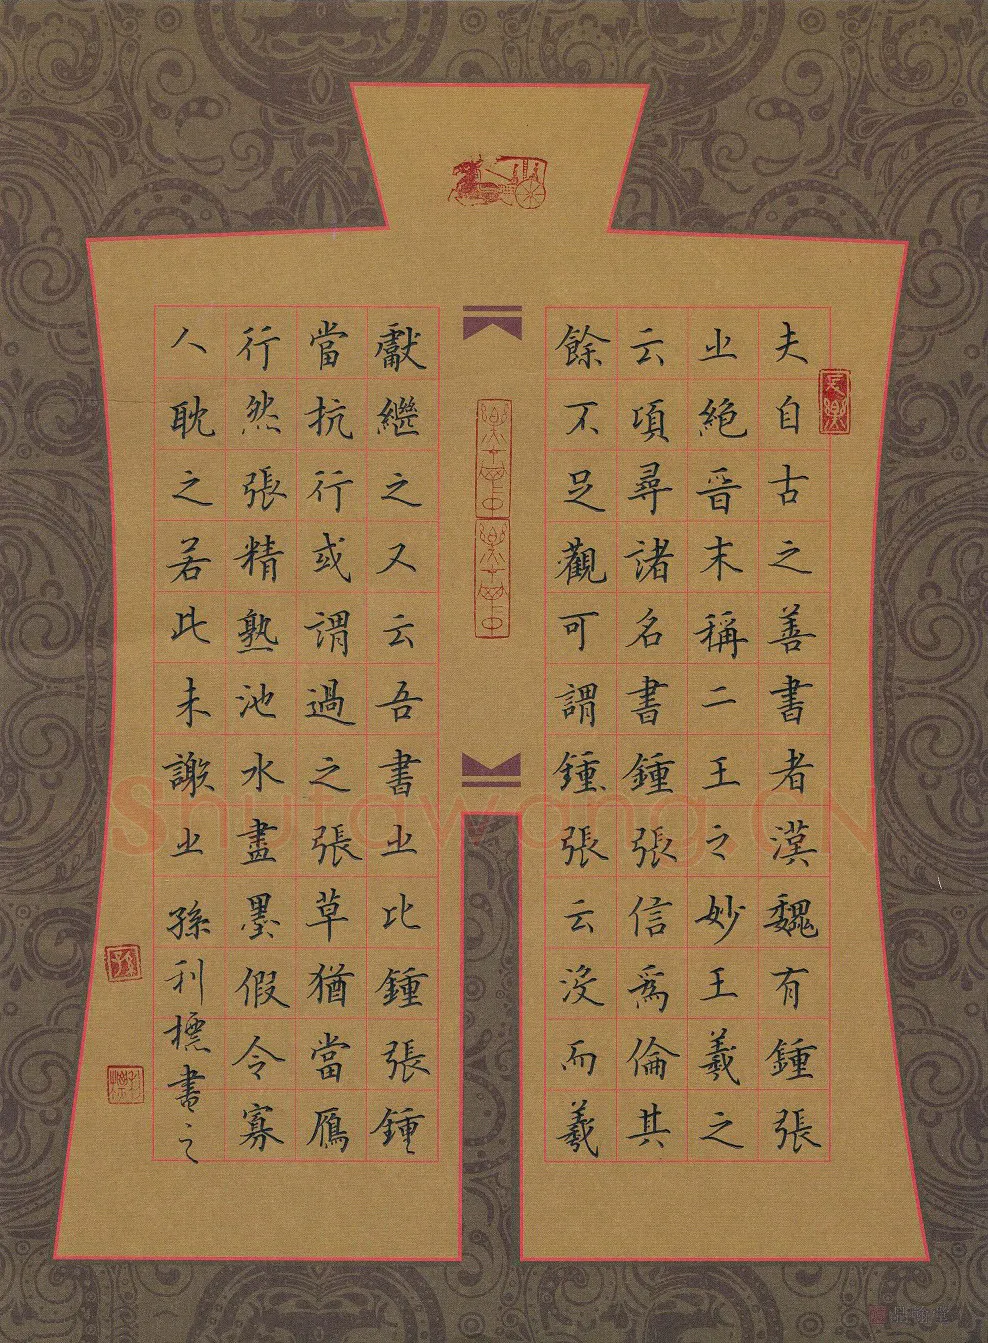 夫自古之善書者漢魏有鍾張
之絕晉末稱二王之妙王羲之
云項尋諸名書鍾張信爲倫其
餘不足觀可謂鍾張云沒而羲
獻繼之又云吾書之比鍾張鍾
當抗行或謂過之張草猶當鴈
行然張精熟池水盡墨假令寡
人耽之若此未謝之孫利標書之
Shufawang.CN